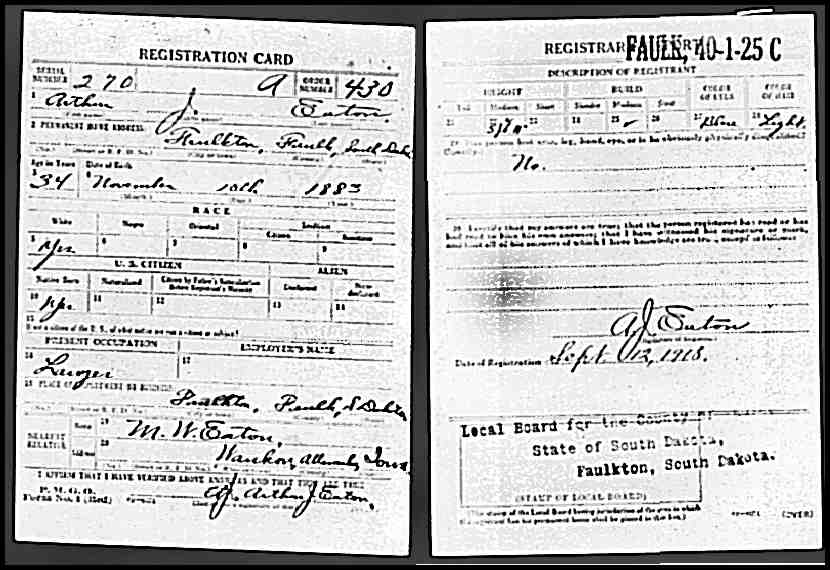 REGISTRATION CARD
SERIAL NUMBER 270 A ORDER NUMBER 430
1 Arthur J. Eaton
2 PERMANENT HOME ADDRESS:
Faulkton, Faulk, South Dak
Age in Years Date of Birth
3 34 4 November 10th 1883
(Month) (Day) (Year)
RACE
White Negro Oriental Indian
Citizen Noncitizen
5 6 7 8 9
U. S. CITIZEN ALIEN
Native Born Naturalized Citizen by Father's Naturalization Before Registrant's Majority Declarant Non-declarant
10 11 12 13 14
15
If not a citizen of the U. S., of what nation are you a citizen or subject?
PRESENT OCCUPATION EMPLOYER'S NAME
16 Lawyer 17
18 PLACE OF EMPLOYMENT OR BUSINESS:
Faulkton, Faulk, S Dakota
NEAREST RELATIVE Name 19 M. W. Eaton,
Address 20 Waukon, Allamakee, Iowa
I AFFIRM THAT I HAVE VERIFIED ABOVE ANSWERS AND THAT THEY ARE TRUE
P. M. G. O.
Form No. 1 (Red) Arthur J Eaton,
FAULK, 40-1-25 C
DESCRIPTION OF REGISTRANT
HEIGHT BUILD COLOR OF EYES COLOR OF HAIR
Tall Medium Short Slender Medium Stout
21 22 23 24 25 ✓ 26 27 Blue 28 Light
29 Has person lost arm, leg, hand, eye, or is he obviously physically disqualified?
(Specify.)
No.
30 I certify that my answers are true; that the person registered has read or has
had read to him his own answers; that I have witnessed his signature or mark,
and that all of his answers of which I have knowledge are true, except as follows:
A J Eaton
Date of Registration Sept 12, 1918.
Local Board for the County of
State of South Dakota,
Faulkton, South Dakota.
(STAMP OF LOCAL BOARD)
(The stamp of the Local Board having jurisdiction of the area in which
the registrant has his permanent home shall be placed in this box.)
(OVER)